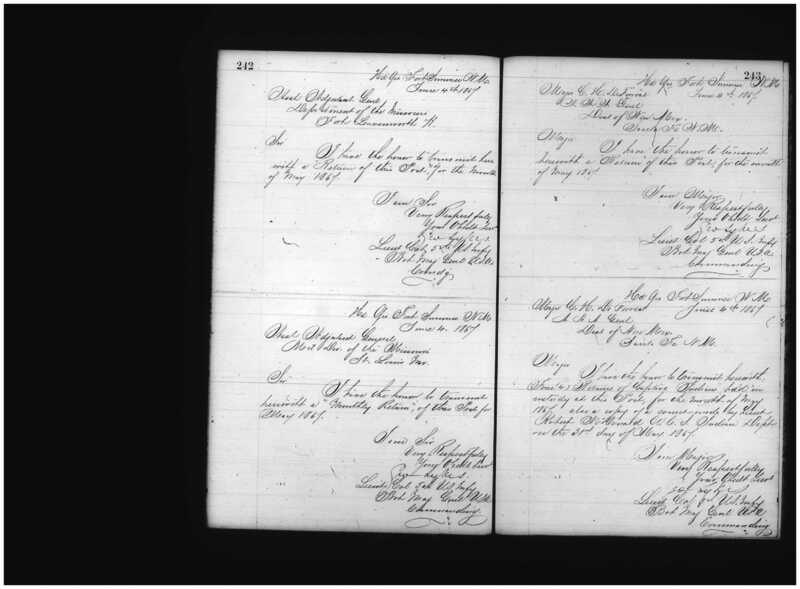 242
Hd Qrs Fort Sumner N.M.
June 4th 1867
Asst Adjutant Genl
Department of the Missouri
Fort Leavenworth K.
Sir
I have the honor to transmit here
with a Return of this Post, for the month
of May 1867.
I am Sir
Very Respectfully
Your Obdt Servt
Geo Sykes
Lieut Col 5th U.S. Infy
Bvt Maj Genl U.S.A.
Comdg.
Hd Qrs Fort Sumner N.M.
June 4. 1867
Asst Adjutant General
Mil Div. of the Missouri
St. Louis Mo.
Sir
I have the honor to transmit
herewith a "Monthly Return", of this Post for
May 1867.
I am Sir
Very Respectfully
Your Obdt Servt
Geo Sykes
Lieut Col 5th U.S. Infy
Bvt Maj Genl U.S.A.
Commanding
243
Hd Qrs Fort Sumner N.M.
June 4th 1867.
Major C. H. DeForrest
A. A. A. Genl
Dist of New Mex.
Santa Fe N.M.
Major
I have the honor to transmit
herewith a Return of this Post, for the month
of May 1867
I am Major
Very Respectfully
Your Obdt Servt
Geo Sykes
Lieut Col 5th U.S. Infy
Bvt Maj Genl U.S.A.
Commanding
Hd Qrs Fort Sumner N.M.
June 4th 1867
Major C. H. De Forrest
A. A. A. Genl
Dist of New Mex.
Santa Fe N.M.
Major
I have the honor to transmit herewith
Returns of Captive Indians held in
custody at this Post, for the month of May
1867, also a copy of a count made by Lieut
Robert McDonald A.C.S. Indian Dept
on the 31st day of May 1867.
I am Major
Very Respectfully
Your Obdt Servt
Geo Sykes
Lieut Col 5th U.S. Infy
Bvt Maj Genl U.S.A
Commanding